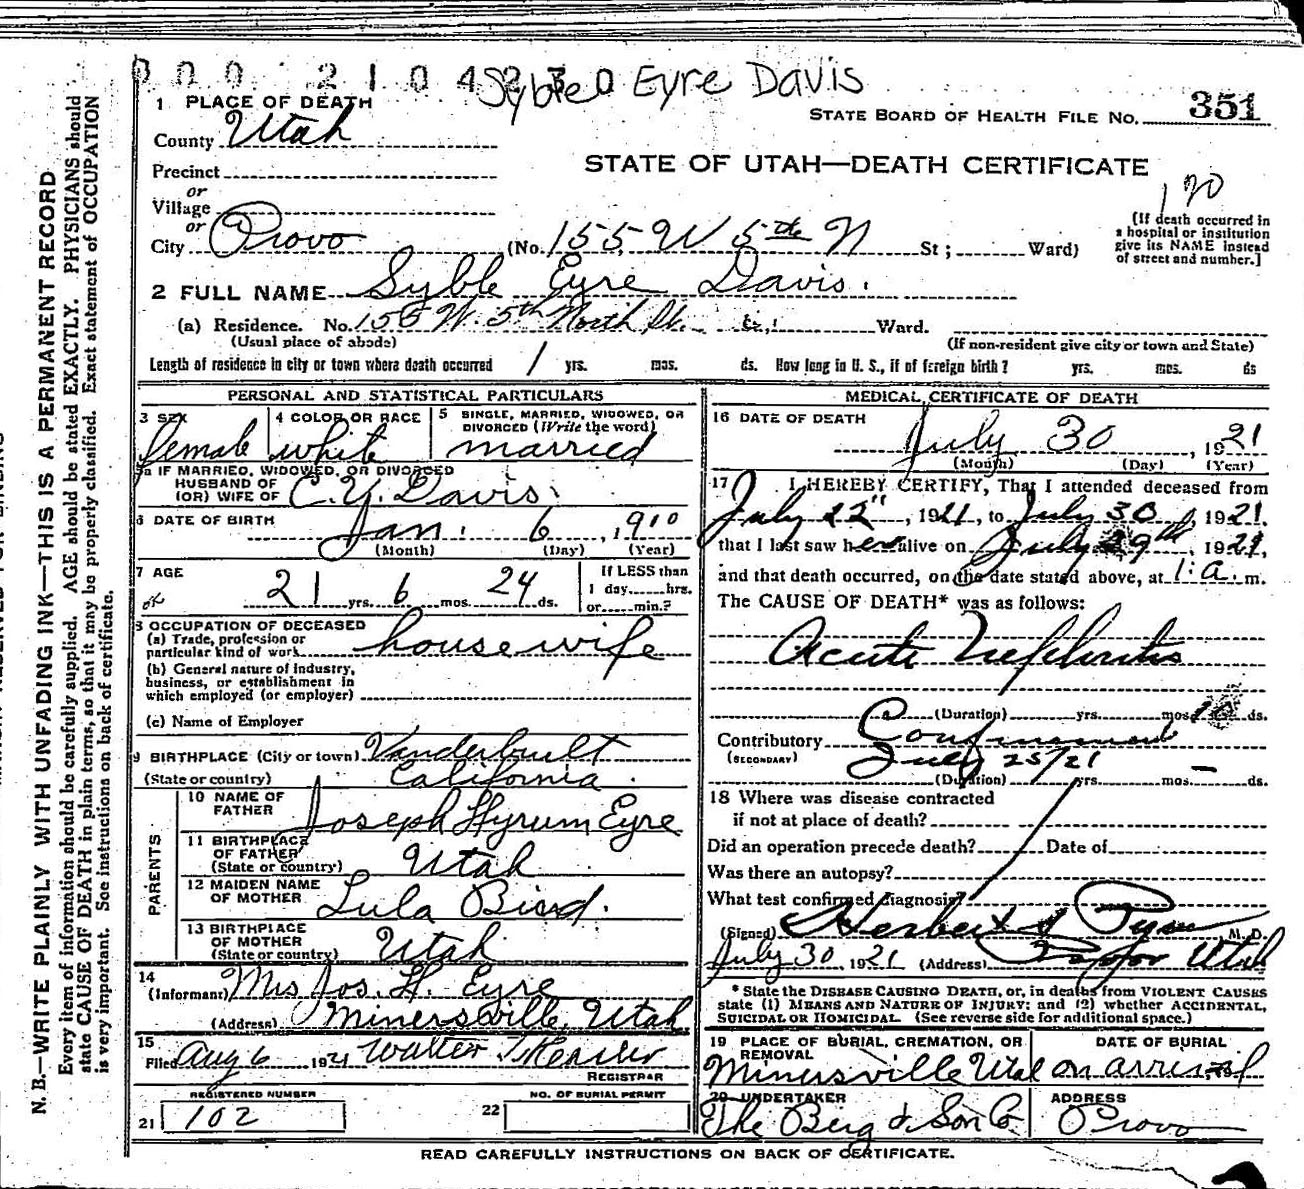 000 210 4230 Syble Eyre Davis
1 PLACE OF DEATH
STATE BOARD OF HEALTH FILE No. 351
County Utah
STATE OF UTAH—DEATH CERTIFICATE
Precinct
190
or
Village
or
City Provo (No. 155 W 5th N St; Ward)
(If death occurred in
a hospital or institution
give its NAME instead
of street and number.]
2 FULL NAME Syble Eyre Davis.
(a) Residence. No. 155 W. 5th North St. St., Ward.
(Usual place of abode)
(If non-resident give city or town and State)
Length of residence in city or town where death occurred 1 yrs. mos. ds. How long in U. S., if of foreign birth? yrs. mos. ds
PERSONAL AND STATISTICAL PARTICULARS
3 SEX
female
4 COLOR OR RACE
white
5 SINGLE, MARRIED, WIDOWED, OR
DIVORCED (Write the word)
married
5a IF MARRIED, WIDOWED, OR DIVORCED
HUSBAND OF
(OR) WIFE OF C. Y. Davis.
6 DATE OF BIRTH Jan. 6, 1910
(Month) (Day) (Year)
7 AGE
21 yrs. 6 mos. 24 ds.
If LESS than
1 day......hrs.
or......min.?
8 OCCUPATION OF DECEASED
(a) Trade, profession or
particular kind of work housewife
(b) General nature of industry,
business, or establishment in
which employed (or employer)
(c) Name of Employer
9 BIRTHPLACE (City or town) Vanderbuilt
(State or country) California.
PARENTS
10 NAME OF
FATHER Joseph Hyrum Eyre
11 BIRTHPLACE
OF FATHER
(State or country) Utah
12 MAIDEN NAME
OF MOTHER Lula Bird.
13 BIRTHPLACE
OF MOTHER
(State or country) Utah
14
(Informant) Mrs Jos. H. Eyre
(Address) Minersville, Utah
15
Filed Aug 6 1921 Walter
REGISTRAR
REGISTERED NUMBER
21 102
NO. OF BURIAL PERMIT
22
MEDICAL CERTIFICATE OF DEATH
16 DATE OF DEATH
July 30, 1921
(Month) (Day) (Year)
17 I HEREBY CERTIFY, That I attended deceased from
July 22", 1921, to July 30, 1921.
that I last saw her alive on July 29th, 1921,
and that death occurred, on the date stated above, at 1:a. m.
The CAUSE OF DEATH* was as follows:
Acute Nefhritis
(Duration) yrs. mos. 10 ds.
Contributory Confinement
(SECONDARY) July 25/21
(Duration) yrs. mos. – ds.
18 Where was disease contracted
if not at place of death?
Did an operation precede death? Date of
Was there an autopsy?
What test confirmed diagnosis?
(Signed) Herbert M. D.
July 30, 1921 (Address) Utah
* State the DISEASE CAUSING DEATH, or, in deaths from VIOLENT CAUSES
state (1) MEANS AND NATURE OF INJURY; and (2) whether ACCIDENTAL,
SUICIDAL OR HOMICIDAL. (See reverse side for additional space.)
19 PLACE OF BURIAL, CREMATION, OR
REMOVAL
Minersville Utah
DATE OF BURIAL
on arrival
20 UNDERTAKER
The Berg & Son Co.
ADDRESS
Provo
READ CAREFULLY INSTRUCTIONS ON BACK OF CERTIFICATE.
N. B.—WRITE PLAINLY WITH UNFADING INK—THIS IS A PERMANENT RECORD
Every item of information should be carefully supplied. AGE should be stated EXACTLY. PHYSICIANS should
state CAUSE OF DEATH in plain terms, so that it may be properly classified. Exact statement of OCCUPATION
is very important. See instructions on back of certificate.